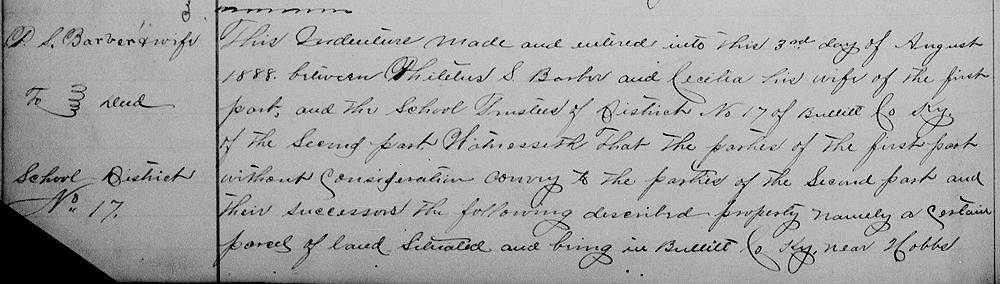 P. S. Barber & wife
To Deed
School District
No. 17.
This Indenture made and entered into this 3rd day of August
1888. between Philetus S Barber and Cecilia his wife of the first
part, and the School Trustees of District No 17 of Bullitt Co Ky,
of the Second part Witnesseth That the parties of the first part
without Consideration convey to the parties of the Second part and
their successors the following described property namely a Certain
parcel of land Situated and being in Bullitt Co Ky, near Hobbs